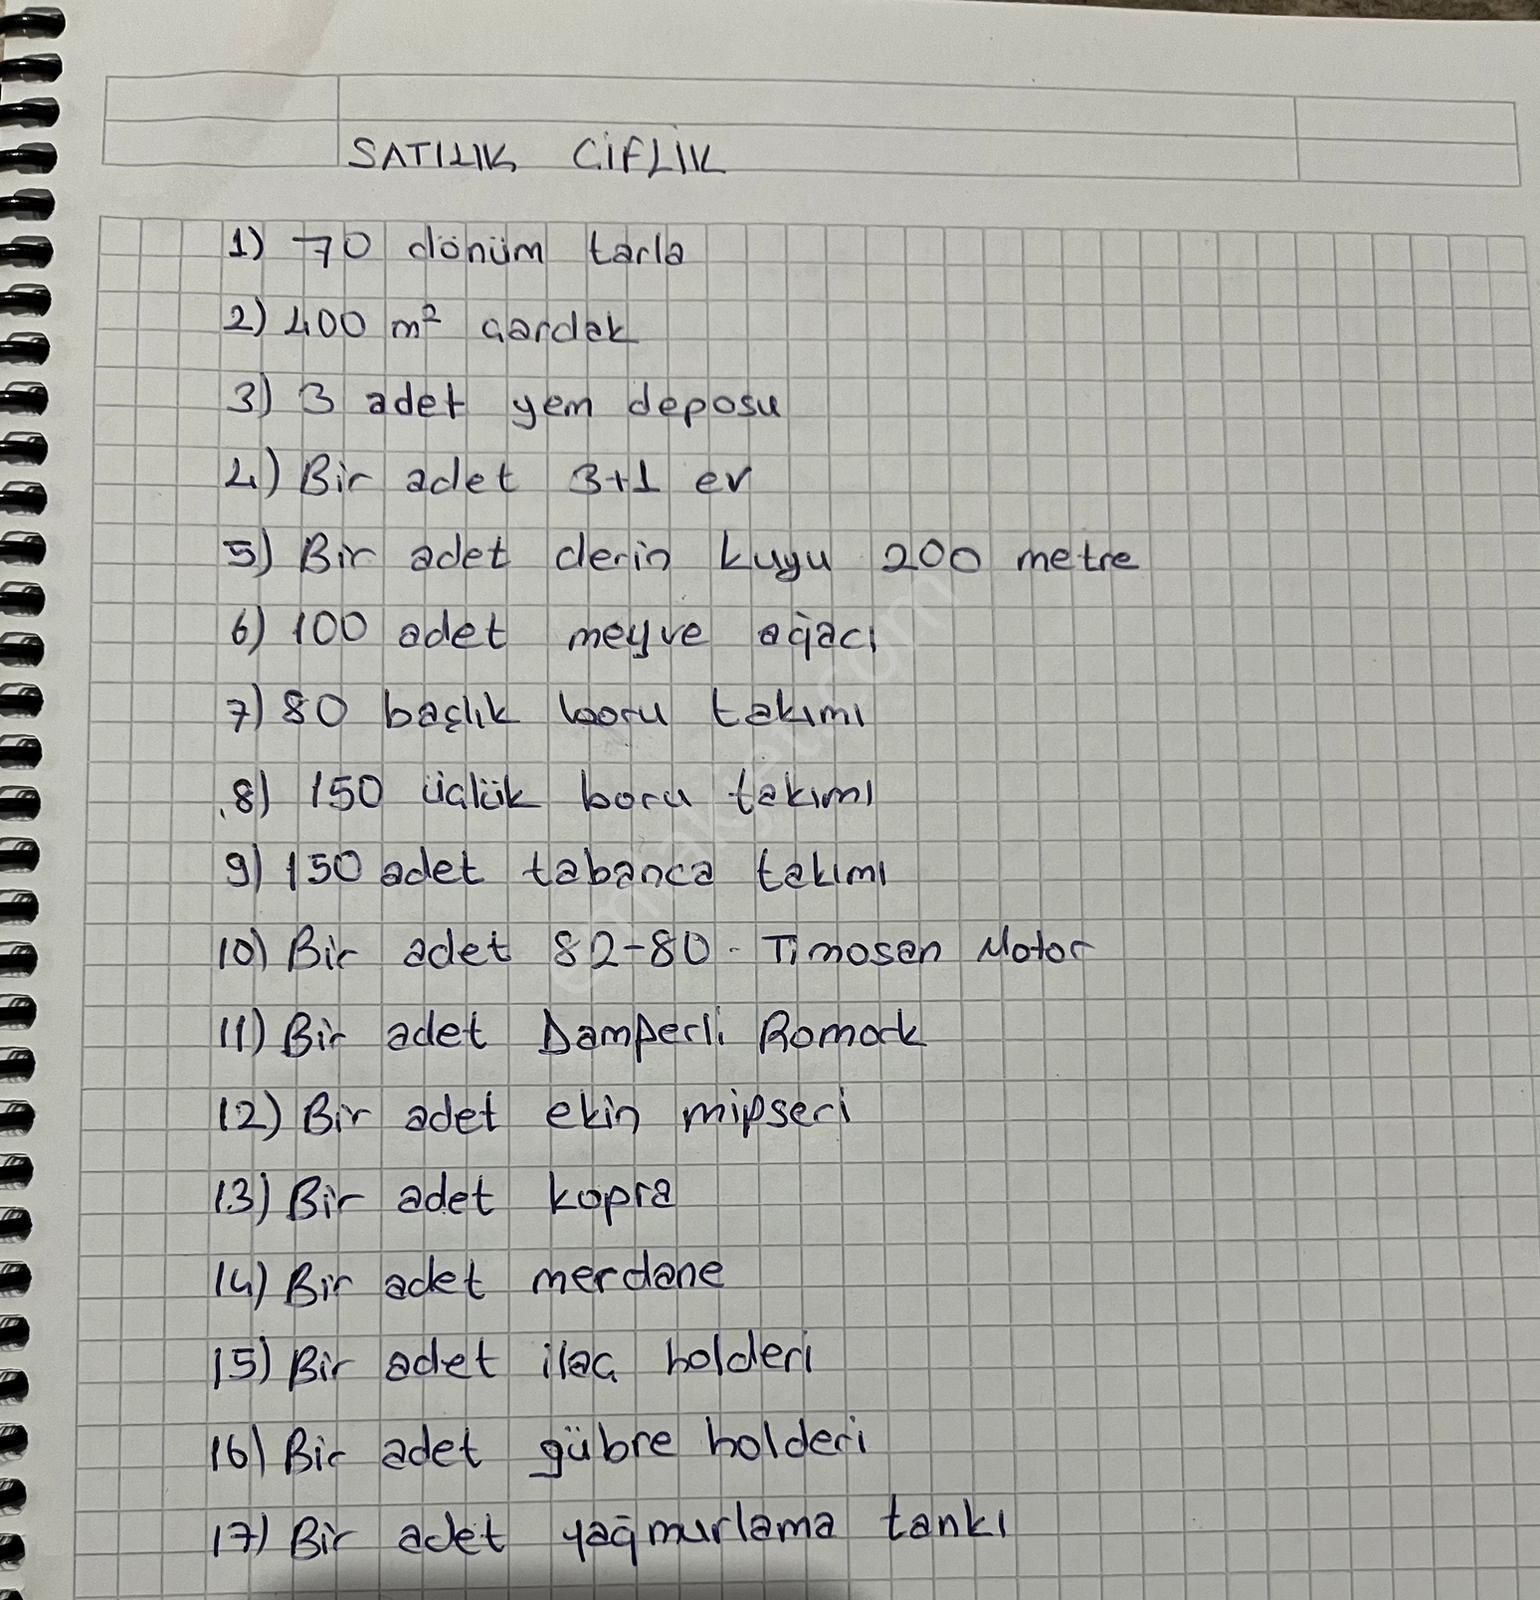 SATILIK ÇİFLİK
1) 70 dönüm tarla
2) 400 m² çardak
3) 3 adet yem deposu
4) Bir adet 3+1 ev
5) Bir adet derin kuyu 200 metre
6) 100 adet meyve ağacı
7) 80 başlık boru takımı
8) 150 üçlük boru takımı
9) 150 adet tabanca takımı
10) Bir adet 82-80 - Tümosan Motor
11) Bir adet Damperli Romork
12) Bir adet ekin mipseri
13) Bir adet kopra
14) Bir adet merdane
15) Bir adet ilaç holderi
16) Bir adet gübre holderi
17) Bir adet yağmurlama tankı
emlakjet.com